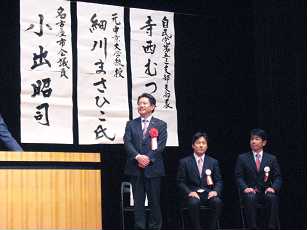 自民党第五支部支部長
寺西むつ
元中京大学教授
細川まさひこ氏
名古屋市会議員
小出昭司